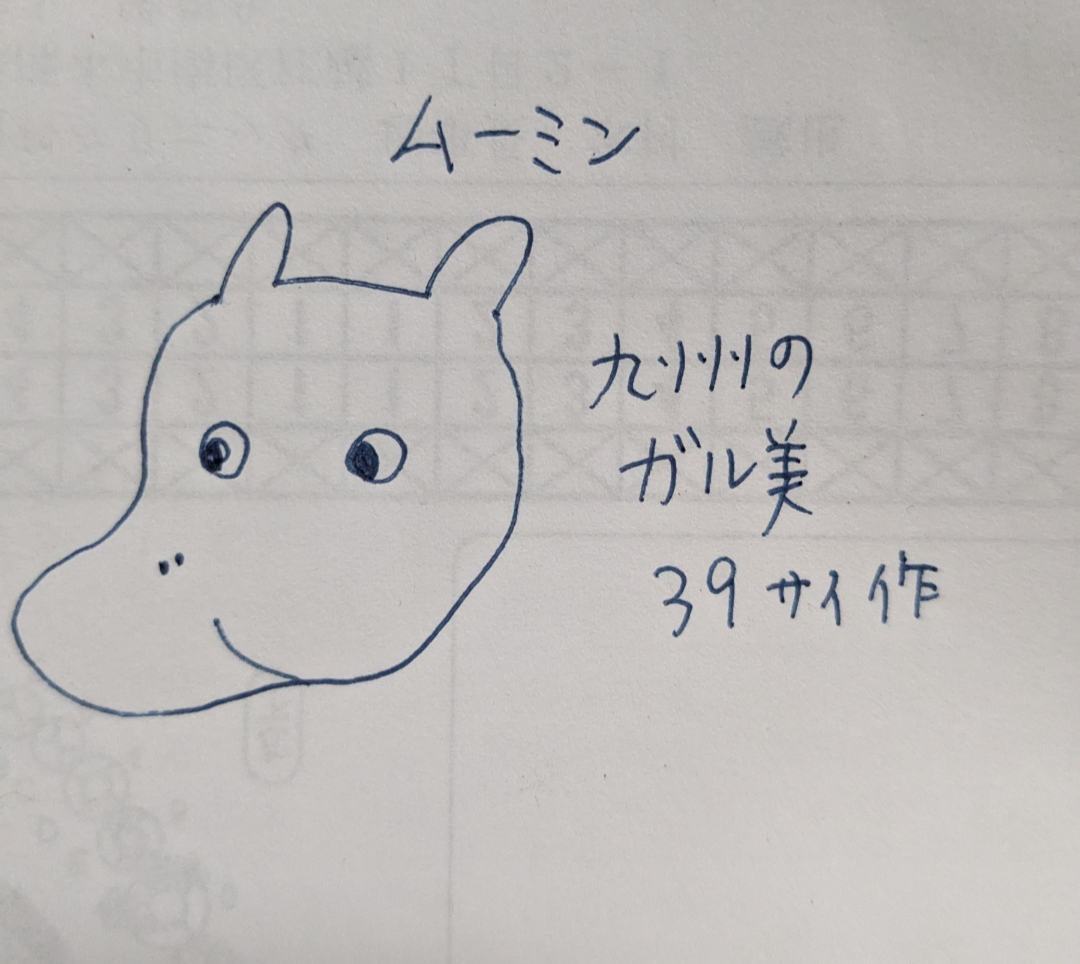 ムーミン
九州の
ガル美
39サイ作